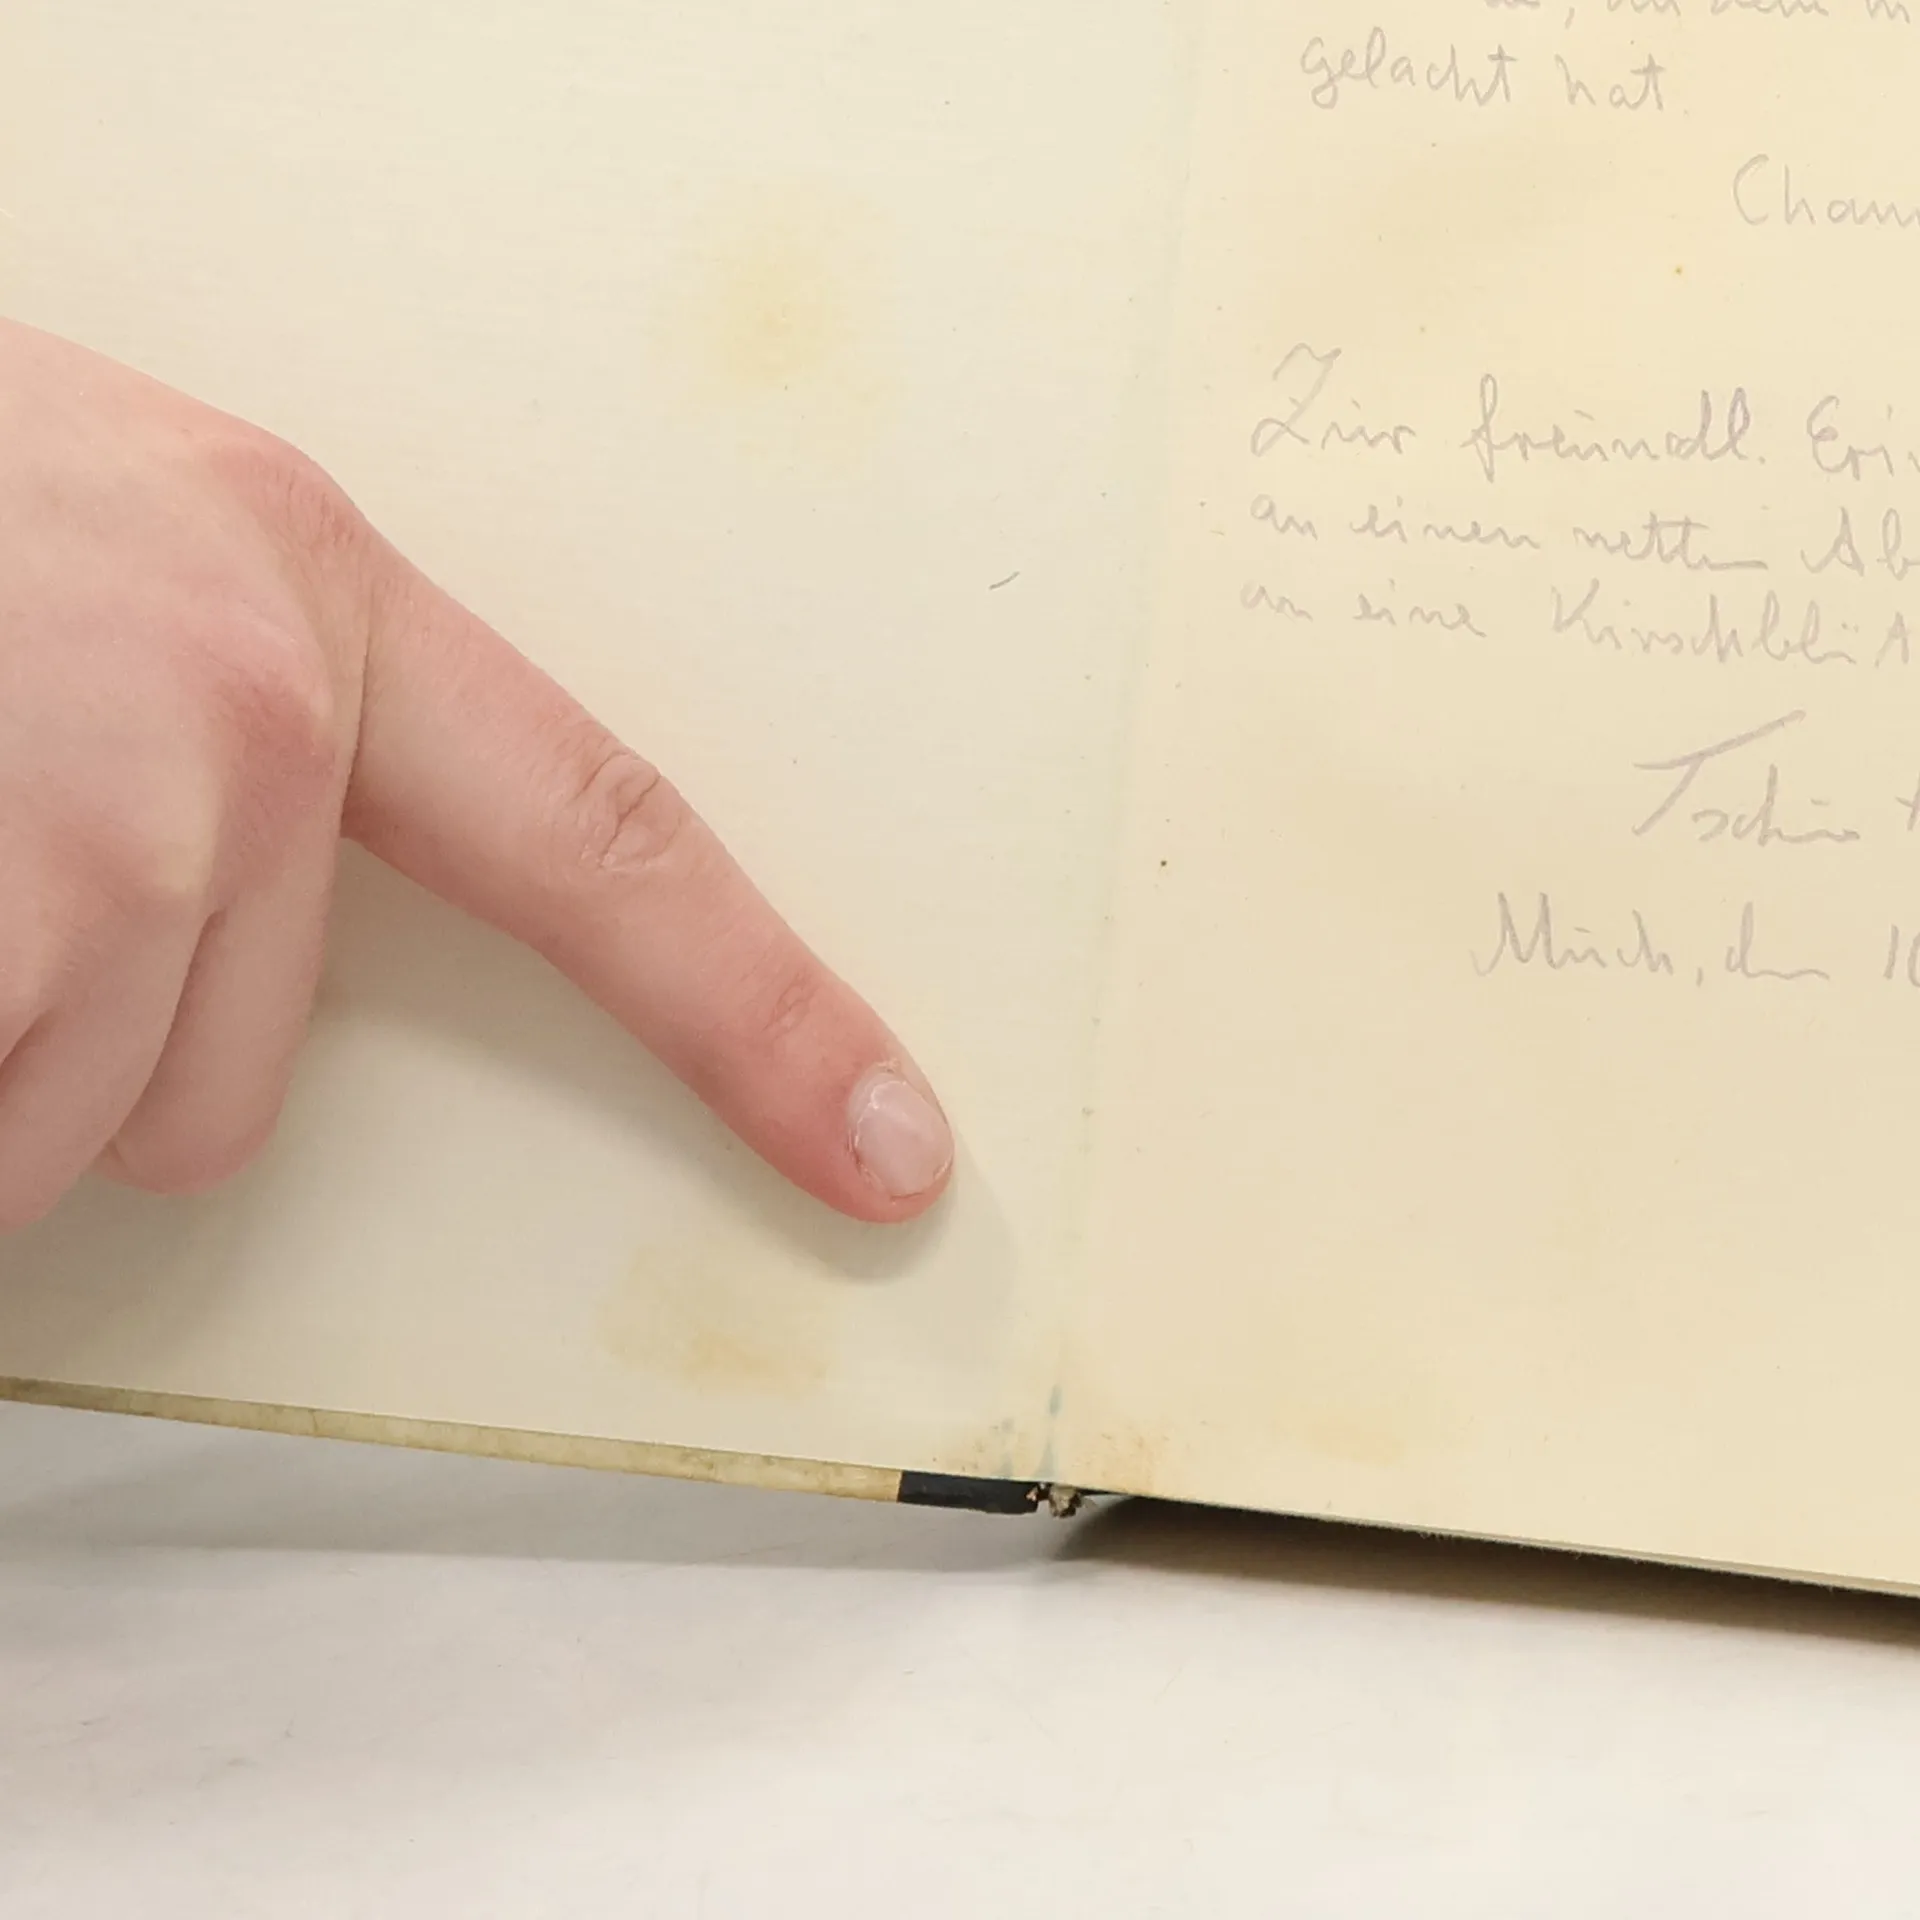 gelacht hat.
Cham
Zur freundl. Eri
an einen netten Ab
an eine Kirschblüt
Münch, den 10